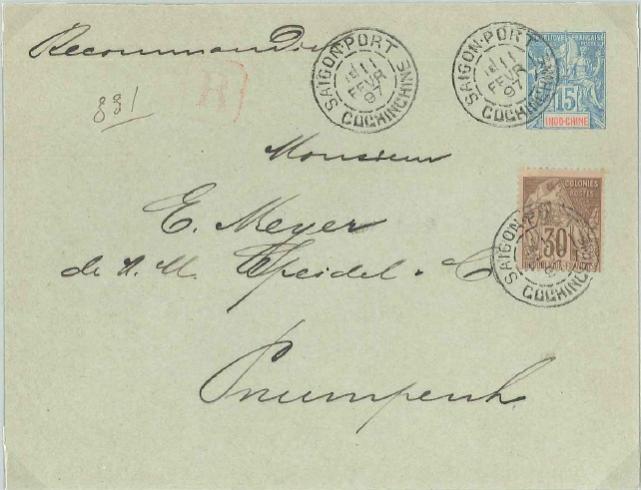 Recommandée
SAIGON-PORT
11
FEVR
97
COCHINCHINE
SAIGON-PORT
11
FEVR
97
COCHINCHINE
15
INDO-CHINE
R
831
Monsieur
E. Meyer
de M. M. Speidel & C
COLONIES
POSTES
30
SAIGON-PORT
COCHINCHINE
Pnumpenh